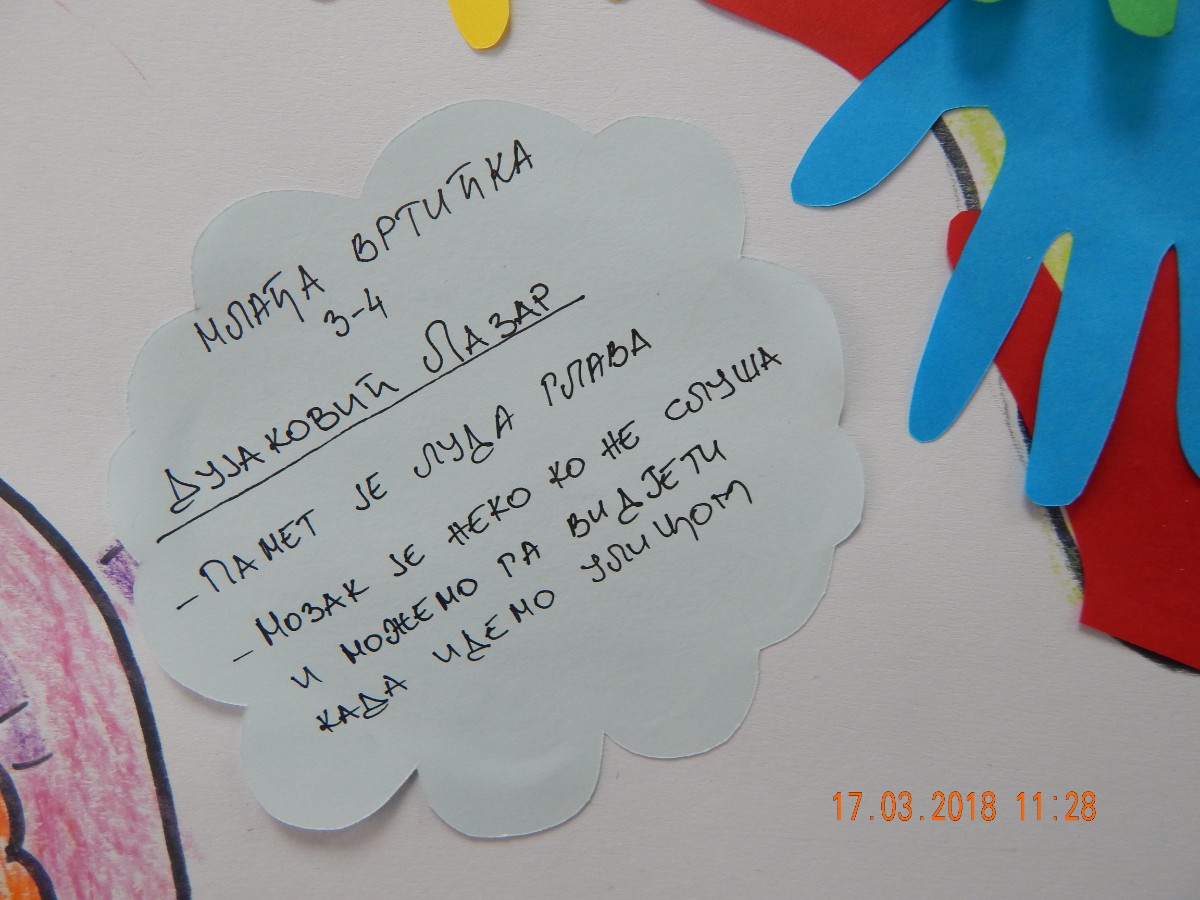 МЛАЂА ВРТИЋКА
3-4
ДУЈАКОВИЋ ЛАЗАР
- ПАМЕТ ЈЕ ЛУДА ГЛАВА
- МОЗАК ЈЕ НЕКО КО НЕ СЛУША
И МОЖЕМО ГА ВИДЈЕТИ
КАДА ИДЕМО УЛИЦОМ
17.03.2018 11:28